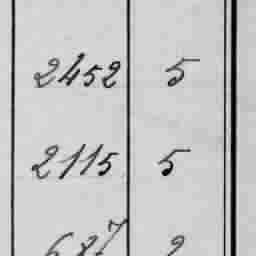 2452 5
2115 5
687 2